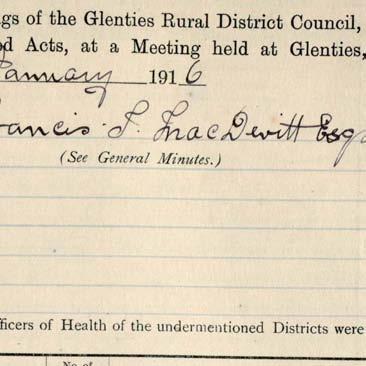 ngs of the Glenties Rural District Council,
d Acts, at a Meeting held at Glenties,
January 1916
Francis S. MacDevitt Esq
(See General Minutes.)
fficers of Health of the undermentioned Districts were
No. of